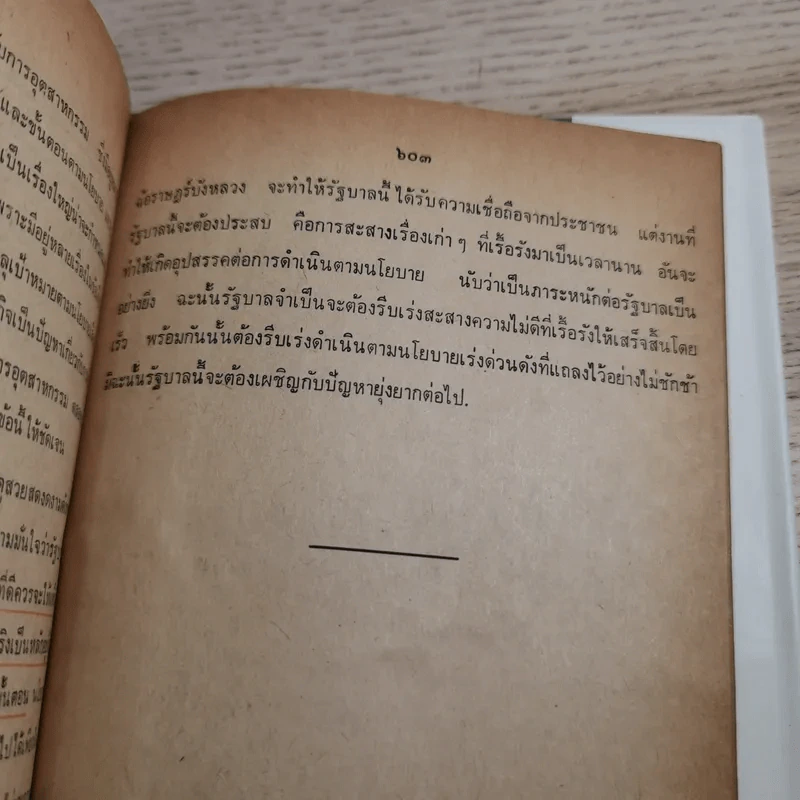 บการอุตสาหกรรม
และขั้นตอนตามนโยบาย
เป็นเรื่องใหญ่น่าจะ
เพราะมีอยู่หลายเรื่อง
ลุเป้าหมายตามนโยบาย
กิจเป็นปัญหาเกี่ยว
การอุตสาหกรรม
ข้อนี้ ให้ชัดเจน
ามมั่นใจว่ารัฐ
ที่ดีควรจะให้
ริงเป็นหล
ขั้นตอน
๖๐๓
ฉ้อราษฎร์บังหลวง จะทำให้รัฐบาลนี้ ได้รับความเชื่อถือจากประชาชน แต่งานที่
รัฐบาลนี้จะต้องประสบ คือการสะสางเรื่องเก่า ๆ ที่เรื้อรังมาเป็นเวลานาน อันจะ
ทำให้เกิดอุปสรรคต่อการดำเนินตามนโยบาย นับว่าเป็นภาระหนักต่อรัฐบาลเป็น
อย่างยิ่ง ฉะนั้นรัฐบาลจำเป็นจะต้องรีบเร่งสะสางความไม่ดีที่เรื้อรังให้เสร็จสิ้นโดย
เร็ว พร้อมกันนั้นต้องรีบเร่งดำเนินตามนโยบายเร่งด่วนดังที่แถลงไว้อย่างไม่ชักช้า
มิฉะนั้นรัฐบาลนี้จะต้องเผชิญกับปัญหายุ่งยากต่อไป.